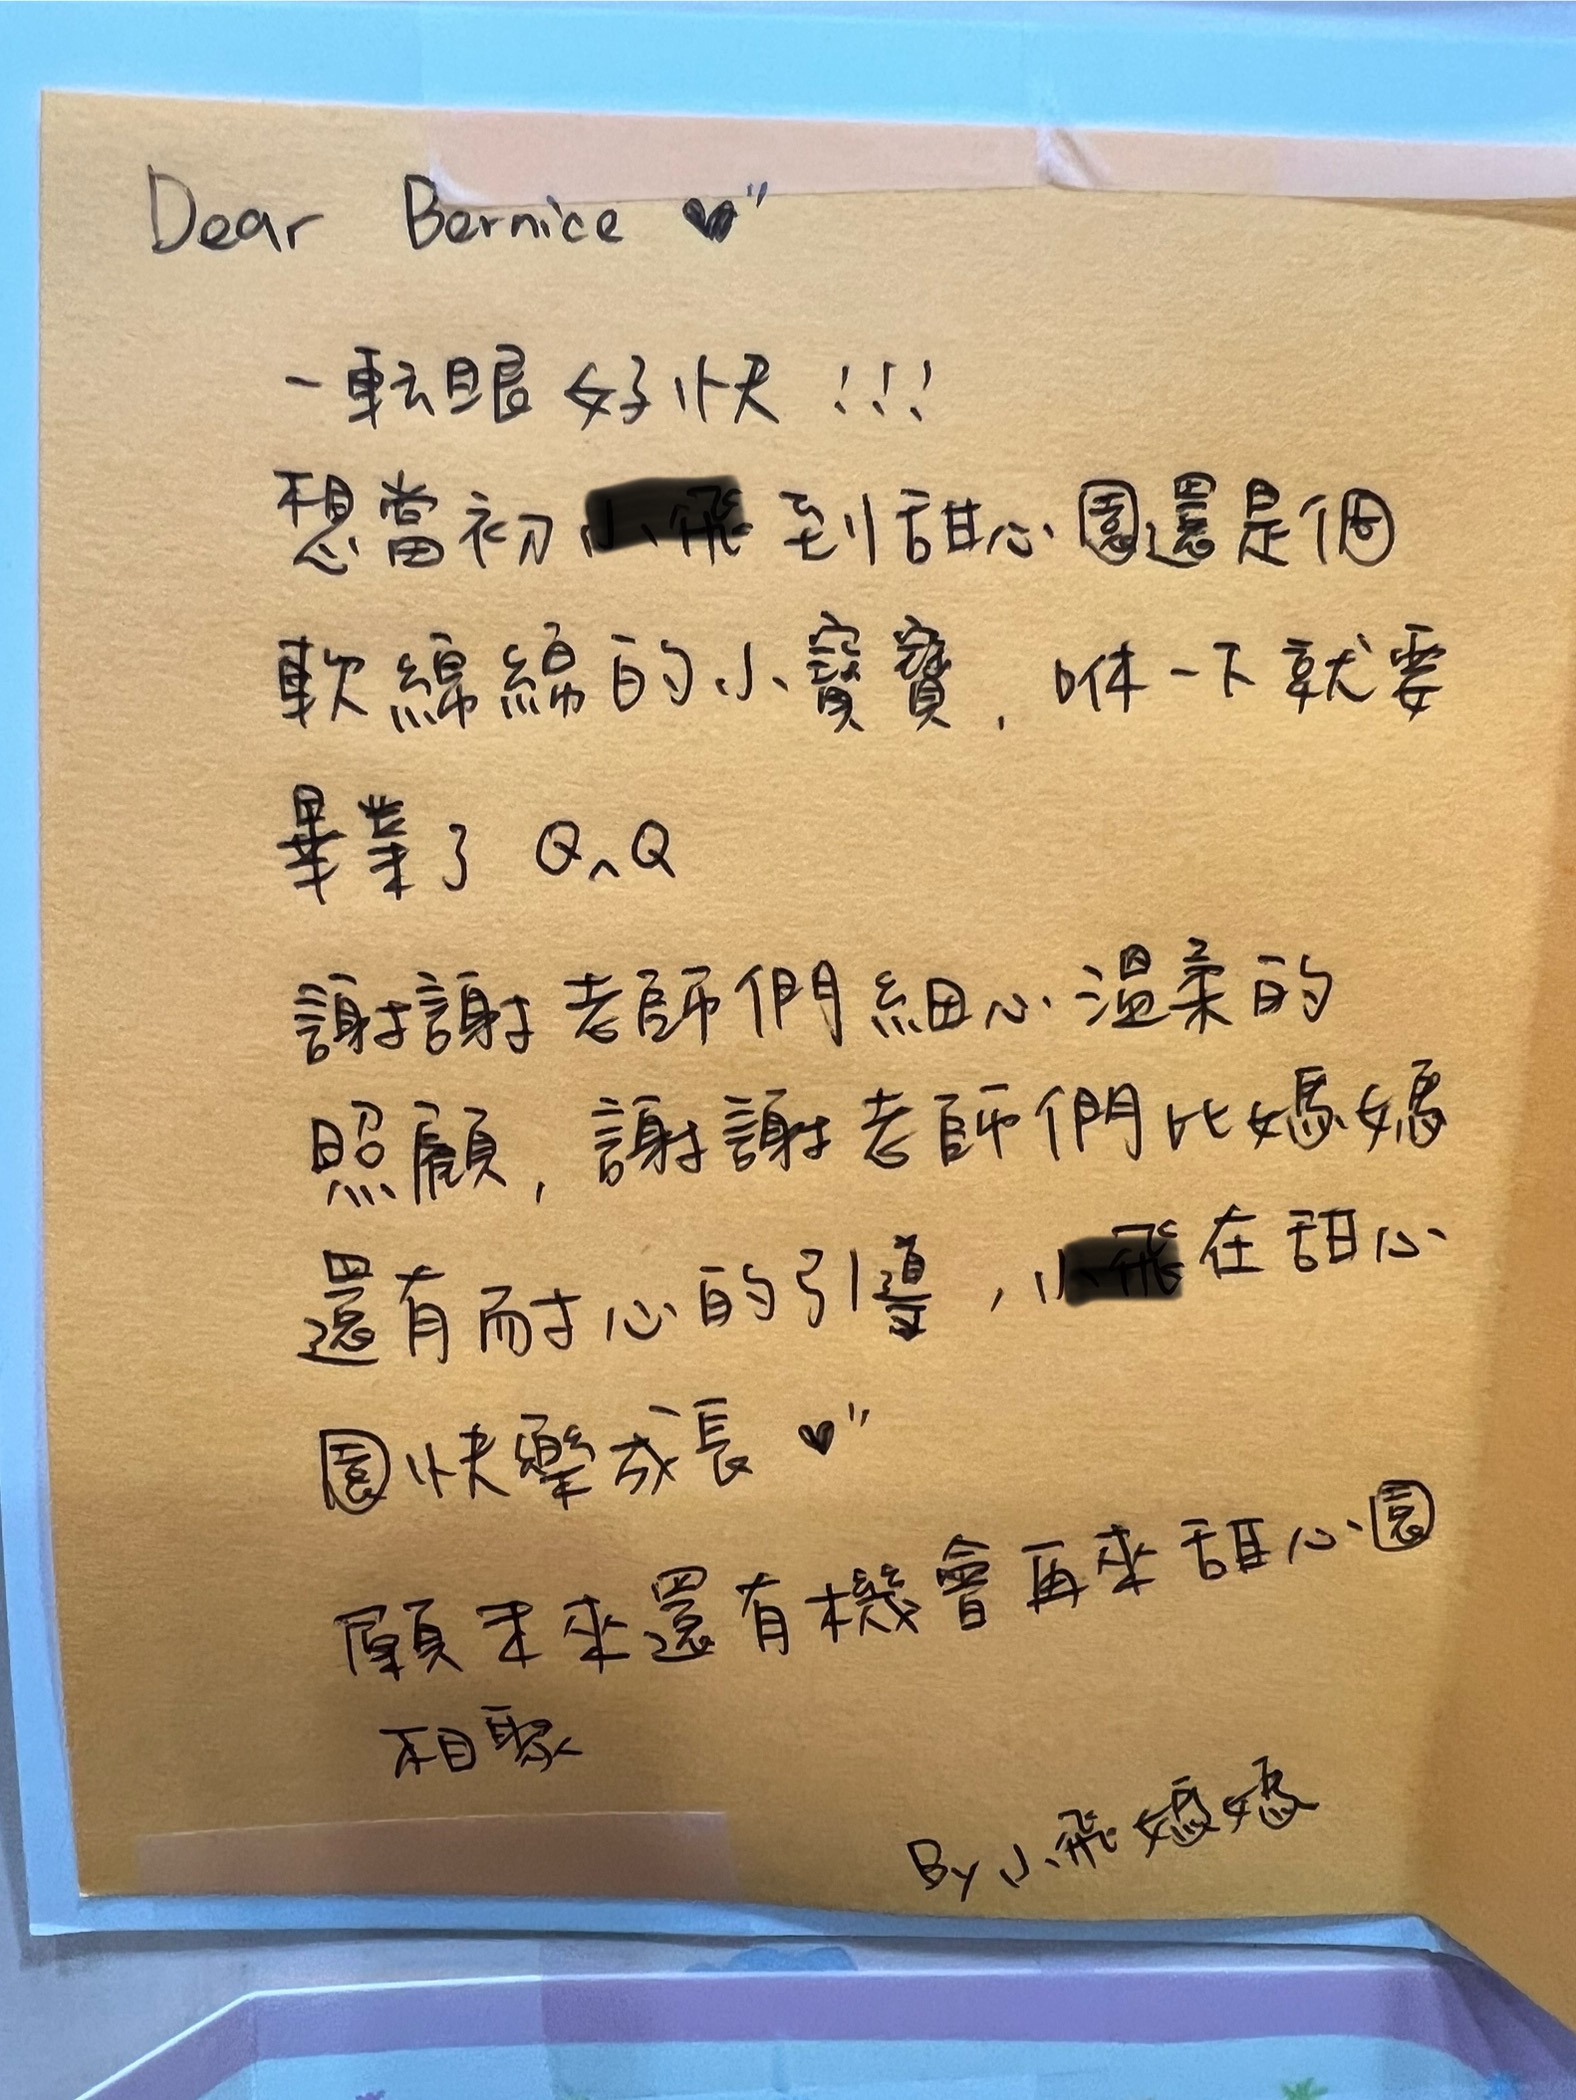 Dear Bernice ♥"
一転眼好快!!!
想當初 到甜心園還是個
軟綿綿的小寶寶,咻一下就要
畢業了 Q^Q
謝謝老師們細心溫柔的
照顧,謝謝老師們比媽媽
還有耐心的引導, 在甜心
園快樂成長♥"
願未來還有機會再來甜心園
相聚
By 小飛媽媽